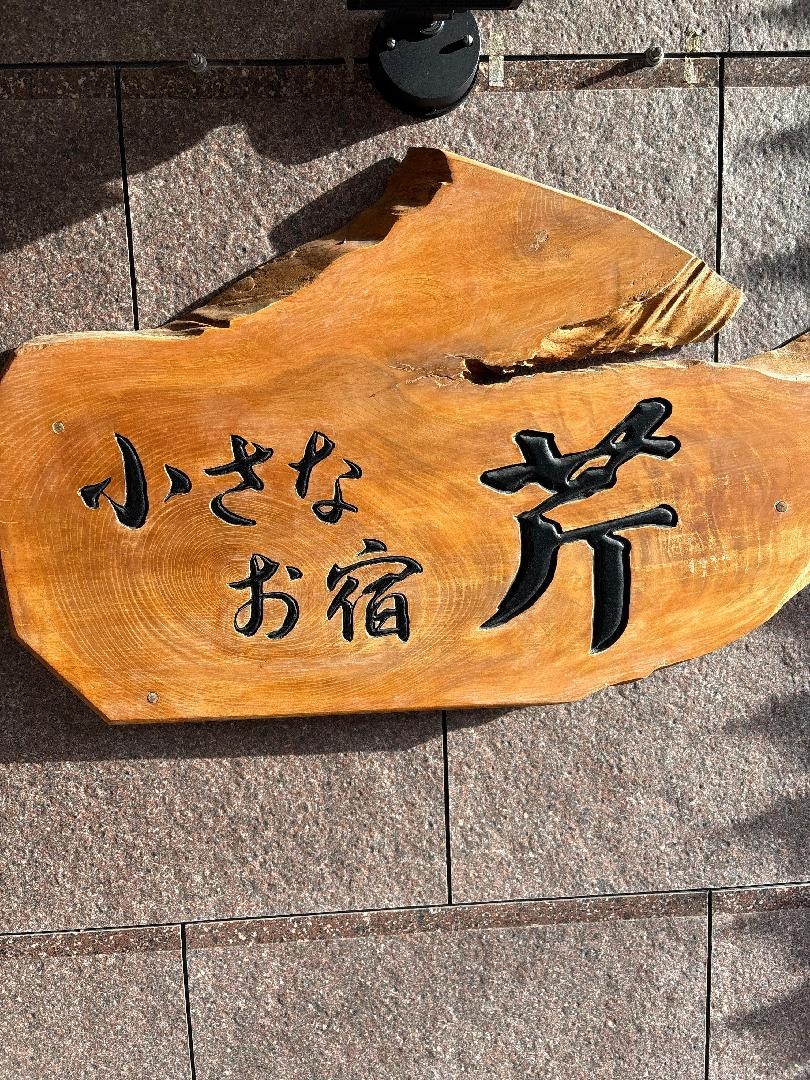 小さな
お宿
芹